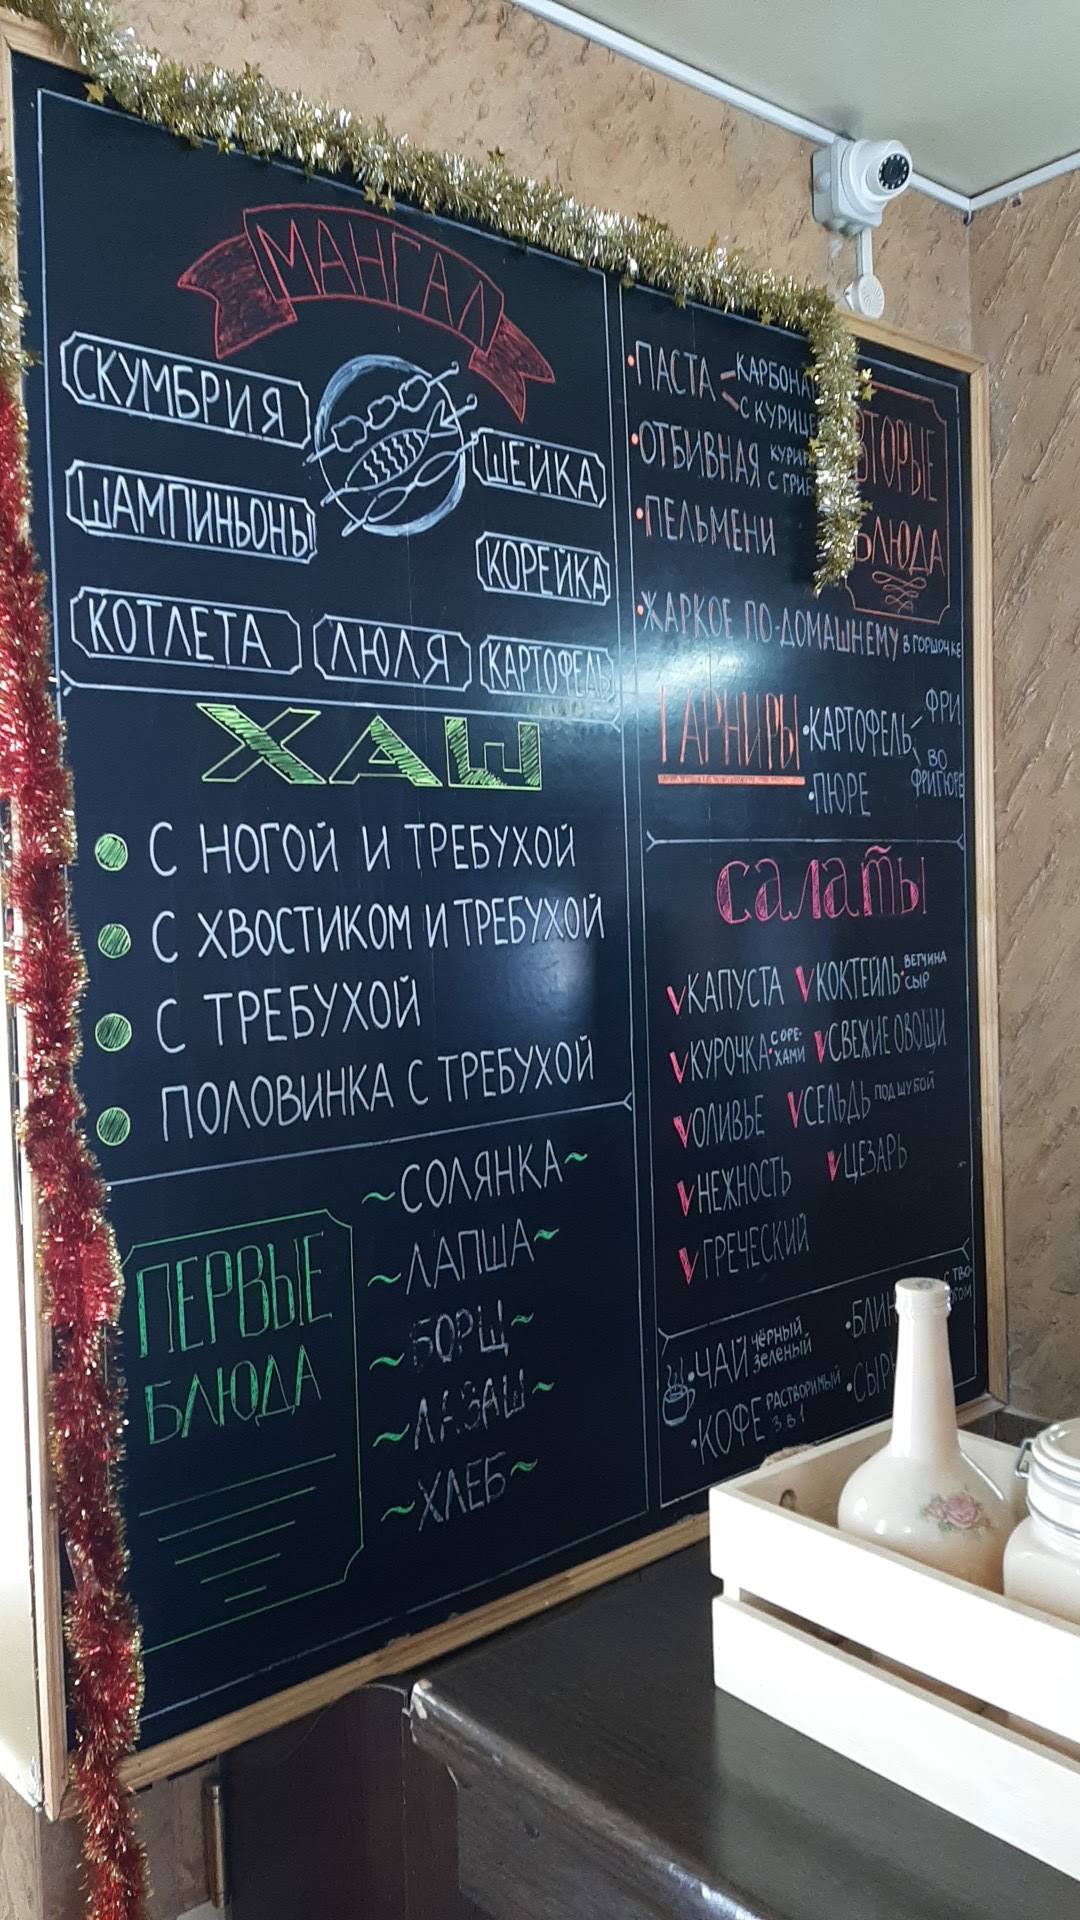 МАНГАЛ
СКУМБРИЯ
ШЕЙКА
ШАМПИНЬОНЫ
КОРЕЙКА
КОТЛЕТА
ЛЮЛЯ
КАРТОФЕЛЬ
ХАШ
С НОГОЙ И ТРЕБУХОЙ
С ХВОСТИКОМ И ТРЕБУХОЙ
С ТРЕБУХОЙ
ПОЛОВИНКА С ТРЕБУХОЙ
ПЕРВЫЕ
БЛЮДА
~СОЛЯНКА~
~ЛАПША~
~БОРЩ~
~ХЛЕБ~
ВТОРЫЕ
БЛЮДА
•ПАСТА
С КУРИЦЕ
•ОТБИВНАЯ
•ПЕЛЬМЕНИ
•ЖАРКОЕ ПО-ДОМАШНЕМУ В ГОРШОЧКЕ
ГАРНИРЫ
•КАРТОФЕЛЬ
ФРИ
ВО
ФРИТЮРЕ
•ПЮРЕ
Салаты
КАПУСТА
КОКТЕЙЛЬ•ВЕТЧИНА
СЫР
КУРОЧКА•С ОРЕ-
ХАМИ
СВЕЖИЕ ОВОЩИ
ОЛИВЬЕ
СЕЛЬДЬ ПОД ШУБОЙ
НЕЖНОСТЬ
ЦЕЗАРЬ
ГРЕЧЕСКИЙ
•ЧАЙ ЧЁРНЫЙ
Зеленый
•КОФЕ РАСТВОРИМЫЙ
3 в 1